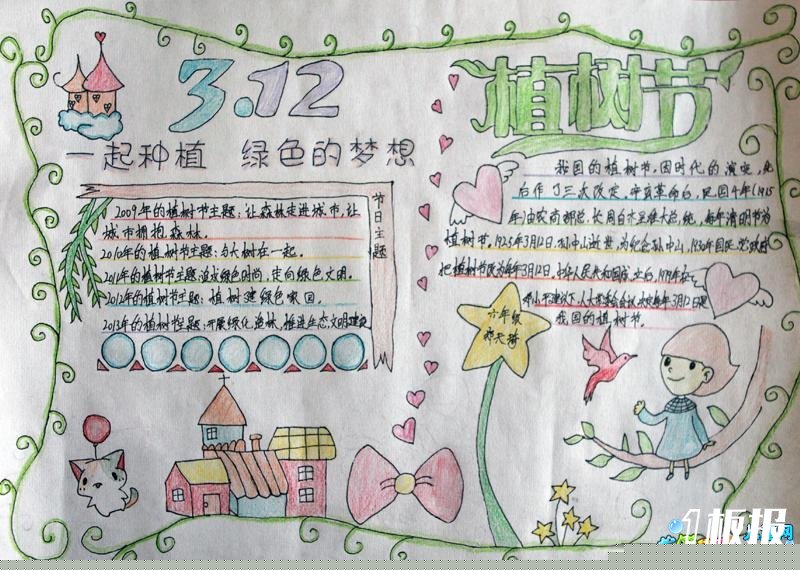 3.12
植树节
一起种植 绿色的梦想
节日主题
2009年的植树节主题：让森林走进城市，让
城市拥抱森林。
2010年的植树节主题：与大树在一起。
2011年的植树节主题：造绿色时尚，走向绿色文明。
2012年的植树节主题：植树建绿色家园。
2013年的植树节主题：开展绿化造林，推进生态文明建设
我国的植树节，因时代的演变，先
后作了三次改定。辛亥革命后，民国4年(1915
年)由农商部总长周自齐呈准大总统，每年清明节为
植树节。1925年3月12日，孙中山逝世，为纪念孙中山，1930年国民党政府
把植树节改为每年3月12日。中华人民共和国成立后，1979年在
邓小平建议下，人大常委会会议决定每年3月12日是
我国的植树节。
六年级
1板报